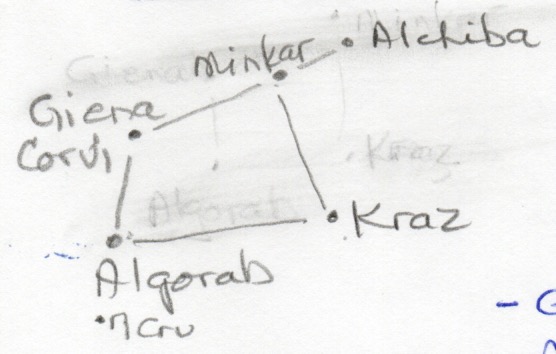 Alchiba
Minkar
Giena
Corvi
Kraz
Algorab
η Crv
- G